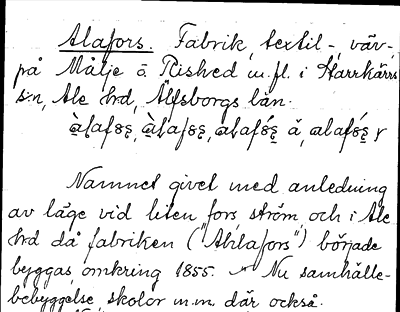 Alafors. Fabrik, textil-, väv-,
på Målje ö. Rished m.fl. i Starrkärrs
s:n, Ale hrd, Älfsborgs län.
Namnet givet med anledning
av läge vid liten fors ström, och i Ale
hrd då fabriken ("Ahlafors") började
byggas omkring 1855. – Nu samhälle-
bebyggelse skolor m.m. där också.